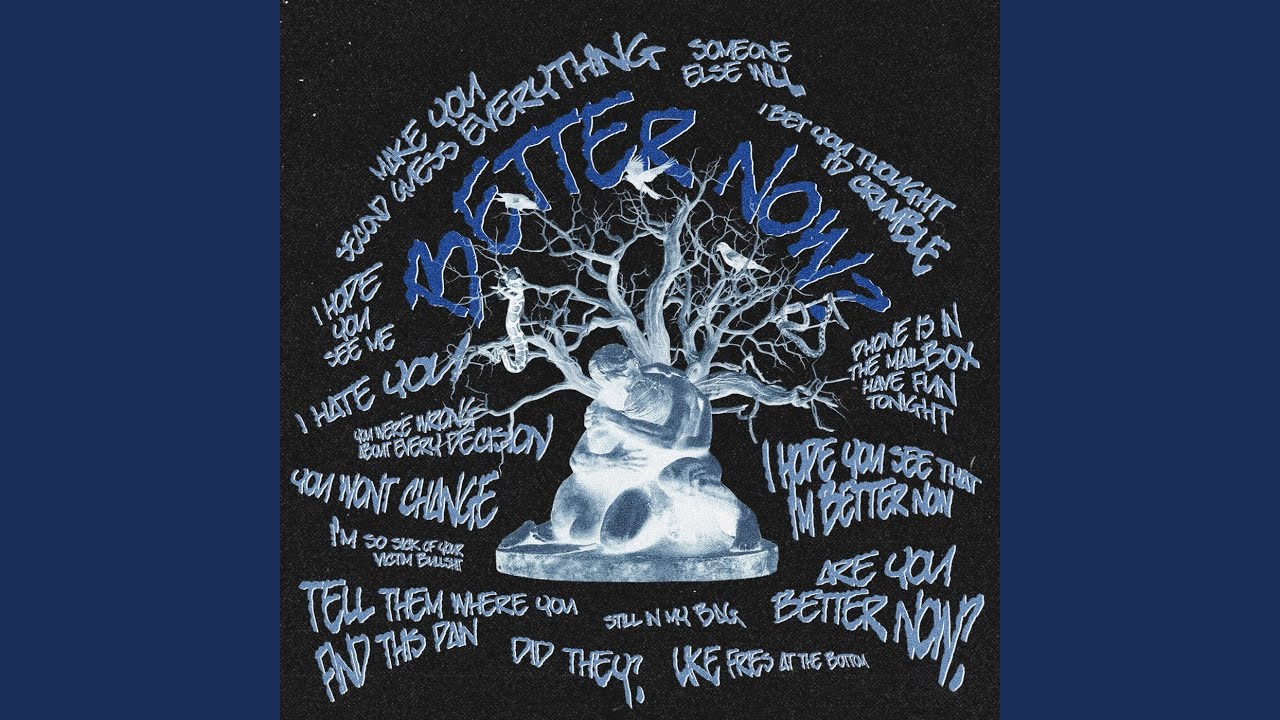 MAKE YOU
SECOND GUESS EVERYTHING
SOMEONE
ELSE WILL
I BET YOU THOUGHT
I'D CRUMBLE
BETTER NOW?
I HOPE
YOU
SEE ME
I HATE YOU
YOU WERE WRONG
ABOUT EVERY DECISION
YOU WONT CHANGE
I'M SO SICK OF YOUR
VICTIM BULLSHIT
TELL THEM WHERE YOU
FIND THIS PAIN
PHONE IS IN
THE MAILBOX
HAVE FUN
TONIGHT
I HOPE YOU SEE THAT
I'M BETTER NOW
ARE YOU
BETTER NOW?
STILL IN MY BAG
DID THEY?
LIKE FRIES AT THE BOTTOM